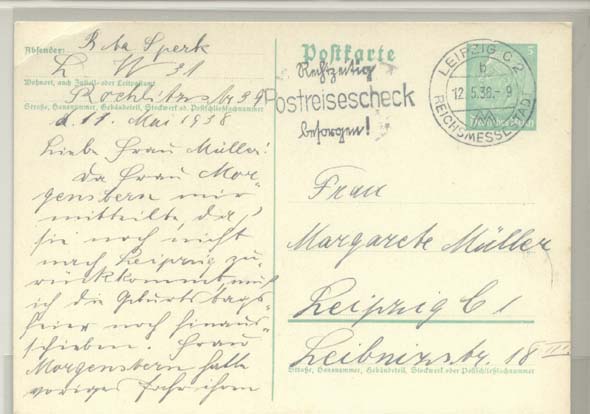 Absender: Rita Sperk
L W 31
Wohnort, auch Zustell- oder Leitpostamt
Rochlitzstr 39
Straße, Hausnummer, Gebäudeteil, Stockwerk od. Postschließfachnummer
d. 11. Mai 1938
Liebe Frau Müller!
Da Frau Mor-
genstern mir
mitteilte, daß
sie noch nicht
nach Leipzig zu-
rückkommt, muß
ich die Geburtstags-
feier noch hinaus-
schieben. Frau
Morgenstern hatte
voriges Jahr ihren
Postkarte
Rechtzeitig
Postreisescheck
besorgen!
LEIPZIG C 2
b
12.5.38.- 9
REICHSMESSESTADT
5
Frau
Margarete Müller
Leipzig C 1
Leibnizstr. 18 III
Straße, Hausnummer, Gebäudeteil, Stockwerk oder Postschließfachnummer